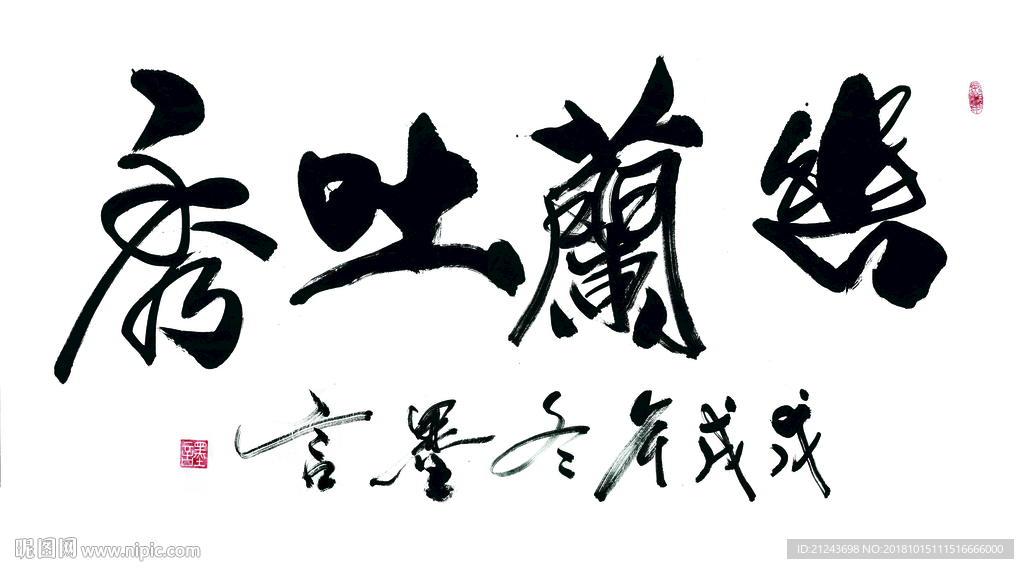 幽蘭吐秀
戊戌年冬墨言
墨言
昵图网 www.nipic.com
ID:21243698 NO:20181015111516666000